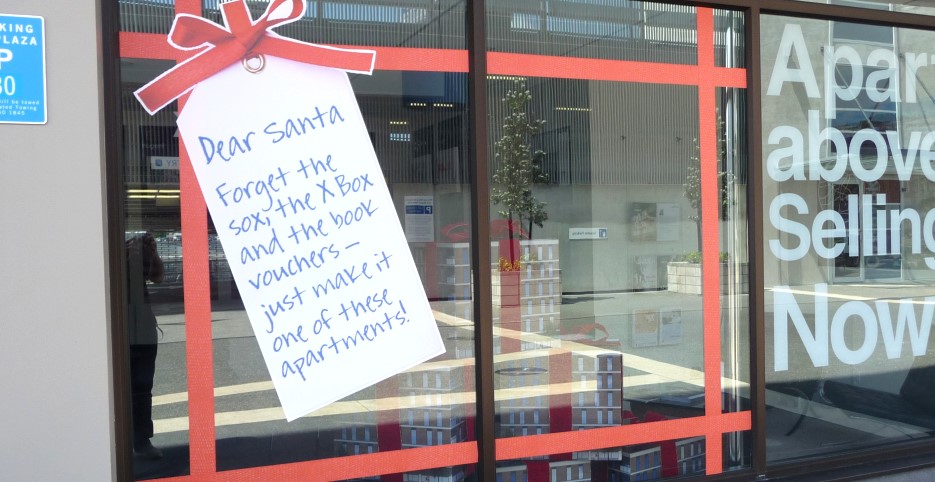 KING
PLAZA
P
30
Dear Santa
Forget the
sox, the X Box
and the book
vouchers –
just make it
one of these
apartments!
Apar
above
Selling
Now